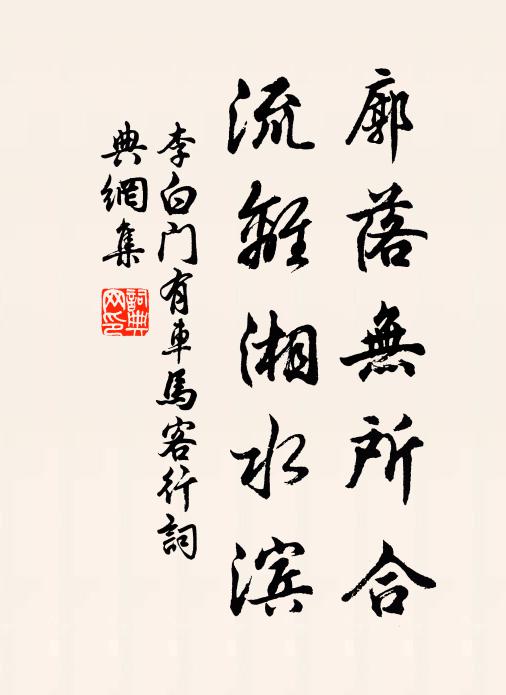 廓落無所合
流離湘水滨
李白门有車馬客行詞
典網集
詞典
网印